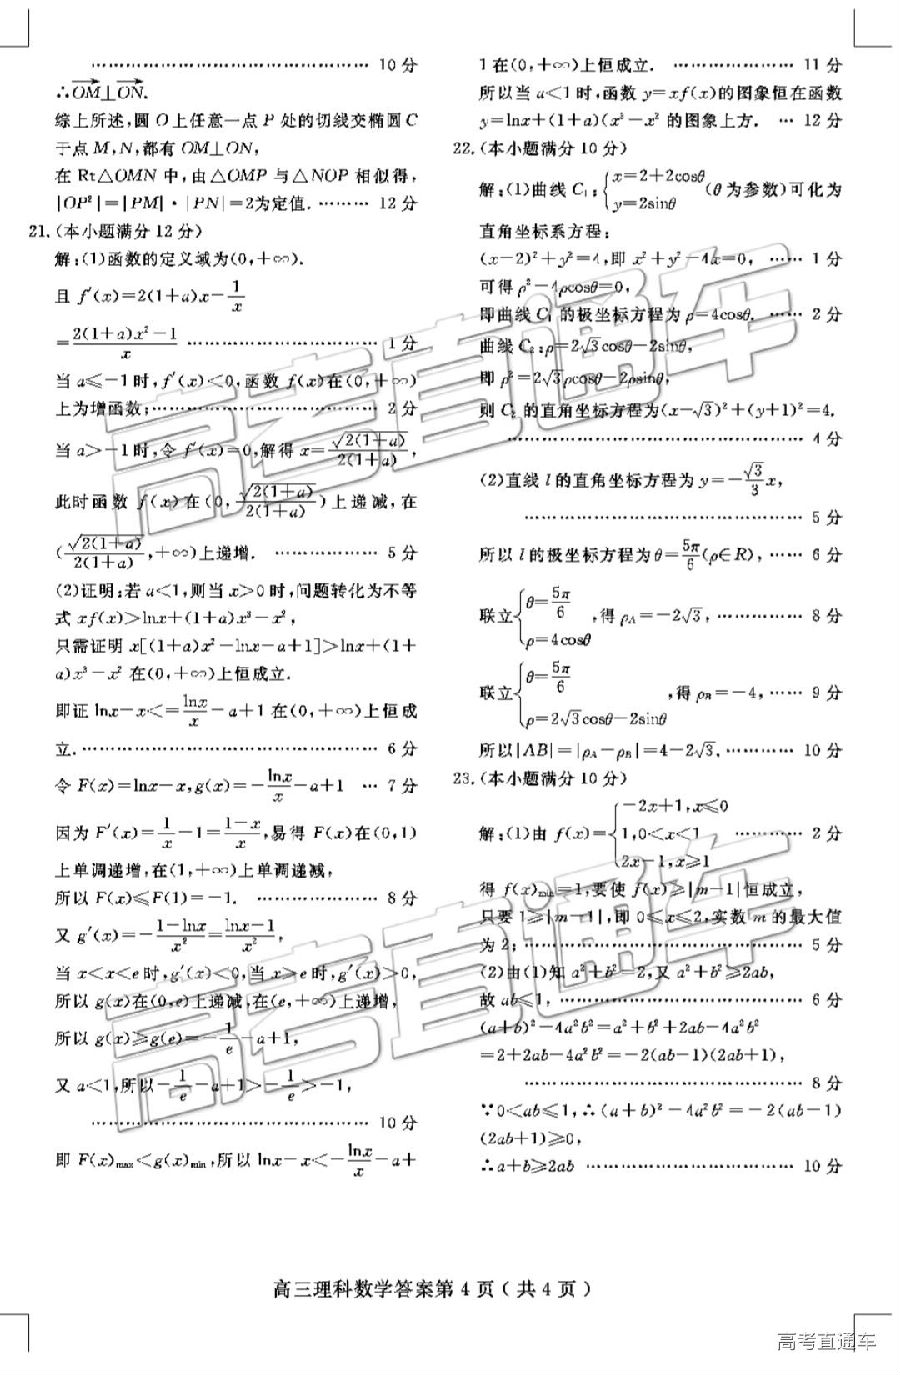 …………………………………… 10 分
∴OM⊥ON.
综上所述,圆 O 上任意一点 P 处的切线交椭圆 C
于点 M,N,都有 OM⊥ON,
在 Rt△OMN 中,由△OMP 与△NOP 相似得,
|OP²|=|PM|·|PN|=2为定值. ……… 12 分
21.(本小题满分 12 分)
解:(1)函数的定义域为(0,+∞).
且 f′(x)=2(1+a)x-1/x
=(2(1+a)x²-1)/x ………………………… 1 分
当 a≤-1 时,f′(x)<0,函数 f(x)在(0,+∞)
上为增函数;……………………………… 2 分
当 a>-1时,令 f′(x)=0,解得 x=√2(1+a)/2(1+a),
此时函数 f(x)在(0,√2(1+a)/2(1+a))上递减,在
(√2(1+a)/2(1+a),+∞)上递增. …………… 5 分
(2)证明:若 a<1,则当 x>0 时,问题转化为不等
式 xf(x)>lnx+(1+a)x³-x²,
只需证明 x[(1+a)x²-lnx-a+1]>lnx+(1+
a)x³-x² 在(0,+∞)上恒成立.
即证 lnx-x<=lnx/x-a+1 在(0,+∞)上恒成
立.……………………………………… 6 分
令 F(x)=lnx-x,g(x)=-lnx/x-a+1 … 7 分
因为 F′(x)=1/x-1=(1-x)/x,易得 F(x)在(0,1)
上单调递增,在(1,+∞)上单调递减,
所以 F(x)≤F(1)=-1. ……………… 8 分
又 g′(x)=-(1-lnx)/x²=(lnx-1)/x²,
当 x<x<e时,g′(x)<0,当 x≥e 时,g′(x)>0,
所以 g(x)在(0,e)上递减,在(e,+∞)上递增,
所以 g(x)≥g(e)=-1/e-a+1,
又 a<1,所以-1/e-a+1>-1/e>-1,
…………………………………… 10 分
即 F(x)max<g(x)min,所以 lnx-x<-lnx/x-a+
1 在(0,+∞)上恒成立. ……………… 11 分
所以当 a<1 时,函数 y=xf(x)的图象恒在函数
y=lnx+(1+a)(x³-x² 的图象上方. … 12 分
22.(本小题满分 10 分)
解:(1)曲线 C₁:{x=2+2cosθ y=2sinθ(θ 为参数)可化为
直角坐标系方程:
(x-2)²+y²=4,即 x²+y²-4x=0, …… 1 分
可得 ρ²-4ρcosθ=0,
即曲线 C₁ 的极坐标方程为 ρ=4cosθ. …… 2 分
曲线 C₂:ρ=2√3cosθ-2sinθ,
即 ρ²=2√3ρcosθ-2ρsinθ,
则 C₂ 的直角坐标方程为(x-√3)²+(y+1)²=4.
…………………………………… 4 分
(2)直线 l 的直角坐标方程为 y=-√3/3x,
…………………………………… 5 分
所以 l 的极坐标方程为 θ=5π/6(ρ∈R), …… 6 分
联立{θ=5π/6 ρ=4cosθ,得 ρA=-2√3, ………… 8 分
联立{θ=5π/6 ρ=2√3cosθ-2sinθ,得 ρB=-4, …… 9 分
所以|AB|=|ρA-ρB|=4-2√3. ………… 10 分
23.(本小题满分 10 分)
解:(1)由 f(x)={-2x+1,x≤0 1,0<x<1 2x-1,x≥1 ………… 2 分
得 f(x)min=1,要使 f(x)≥|m-1|恒成立,
只要 1≥|m-1|,即 0≤x≤2,实数 m 的最大值
为 2; ………………………………… 5 分
(2)由(1)知 a²+b²=2,又 a²+b²≥2ab,
故 ab≤1, ……………………………… 6 分
(a+b)²-4a²b²=a²+b²+2ab-4a²b²
=2+2ab-4a²b²=-2(ab-1)(2ab+1),
…………………………………… 8 分
∵0<ab≤1,∴(a+b)²-4a²b²=-2(ab-1)
(2ab+1)≥0,
∴a+b≥2ab ………………………… 10 分
高三理科数学答案第 4 页(共 4 页)
高考直通车
高考直通车
高考直通车